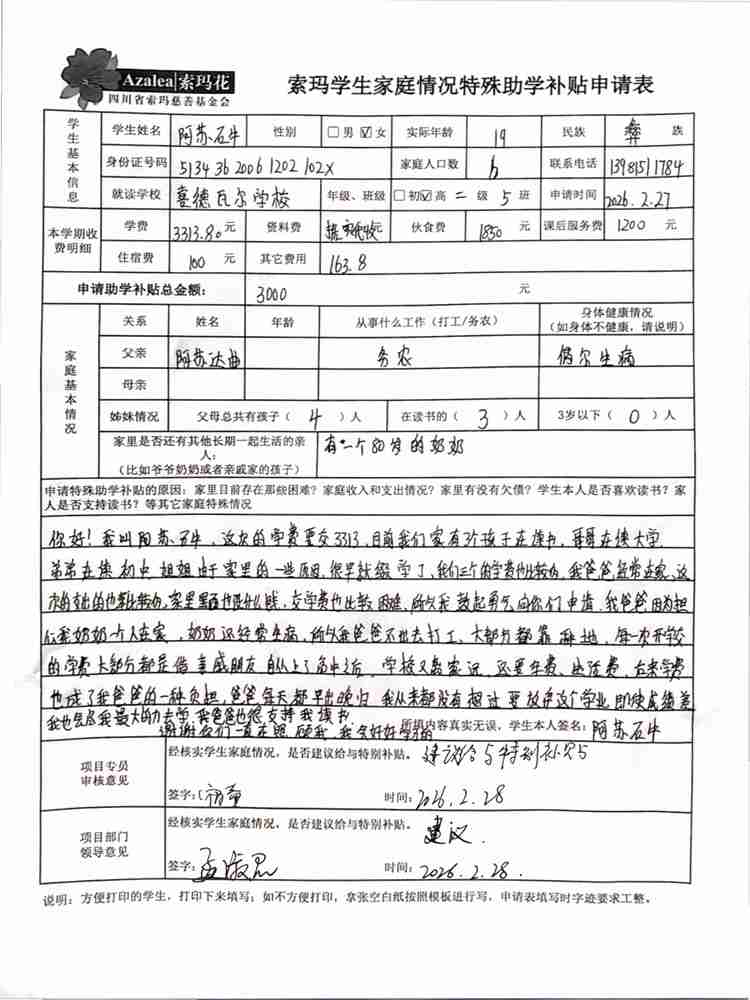 Azalea 索玛花
四川省索玛慈善基金会
索玛学生家庭情况特殊助学补贴申请表
学生基本信息
学生姓名 阿苏石牛 性别 □男 ☑女 实际年龄 19 民族 彝 族
身份证号码 51343620061202102X 家庭人口数 6 联系电话 13981511784
就读学校 喜德瓦尔学校 年级、班级 □初 ☑高 二 级 5 班 申请时间 2026.2.27
本学期收费明细
学费 3313.80 元 资料费 按实代收 元 伙食费 1850 元 课后服务费 1200 元
住宿费 100 元 其它费用 163.8
申请助学补贴总金额: 3000 元
家庭基本情况
关系 姓名 年龄 从事什么工作(打工/务农) 身体健康情况(如身体不健康,请说明)
父亲 阿苏达曲 务农 偶尔生病
母亲
姊妹情况 父母总共有孩子( 4 )人 在读书的( 3 )人 3岁以下( 0 )人
家里是否还有其他长期一起生活的亲人:
(比如爷爷奶奶或者亲戚家的孩子)
有一个80岁的奶奶
申请特殊助学补贴的原因:家里目前存在那些困难?家庭收入和支出情况?家里有没有欠债?学生本人是否喜欢读书?家
人是否支持读书?等其它家庭特殊情况
你好!我叫阿苏石牛,这次的学费要交3313,目前我们家有3个孩子在读书,哥哥在读大学
弟弟在读初中,姐姐由于家里的一些原因,很早就辍学了,我们三个的学费也比较高,我爸爸经常在家,这
次的支出的也比较高,家里里面也没什么钱,交学费也比较困难,所以我鼓起勇气向你们申请,我爸爸因为担
心我奶奶一个人在家,奶奶还经常生病,所以我爸爸不出去打工,大部分都靠种地,每一次开学校
的学费大部分都是借亲戚朋友,自从上了高中之后,学校又离家远,还要车费、生活费,后来学费
也成了我爸爸的一种负担,爸爸每天都早出晚归,我从来都没有想过要放弃这个学业,即使成绩差
我也会尽我最大的力去学,我爸爸也很支持我读书.
谢谢你们一直在照顾我,我会好好学习的
所填内容真实无误,学生本人签名:阿苏石牛
项目专员审核意见
经核实学生家庭情况,是否建议给与特别补贴。 建议给与特别补贴
签字: 时间: 2026.2.28
项目部门领导意见
经核实学生家庭情况,是否建议给与特别补贴。 建议.
签字: 时间: 2026.2.28.
说明:方便打印的学生,打印下来填写;如不方便打印,拿张空白纸按照模板进行写,申请表填写时字迹要求工整。